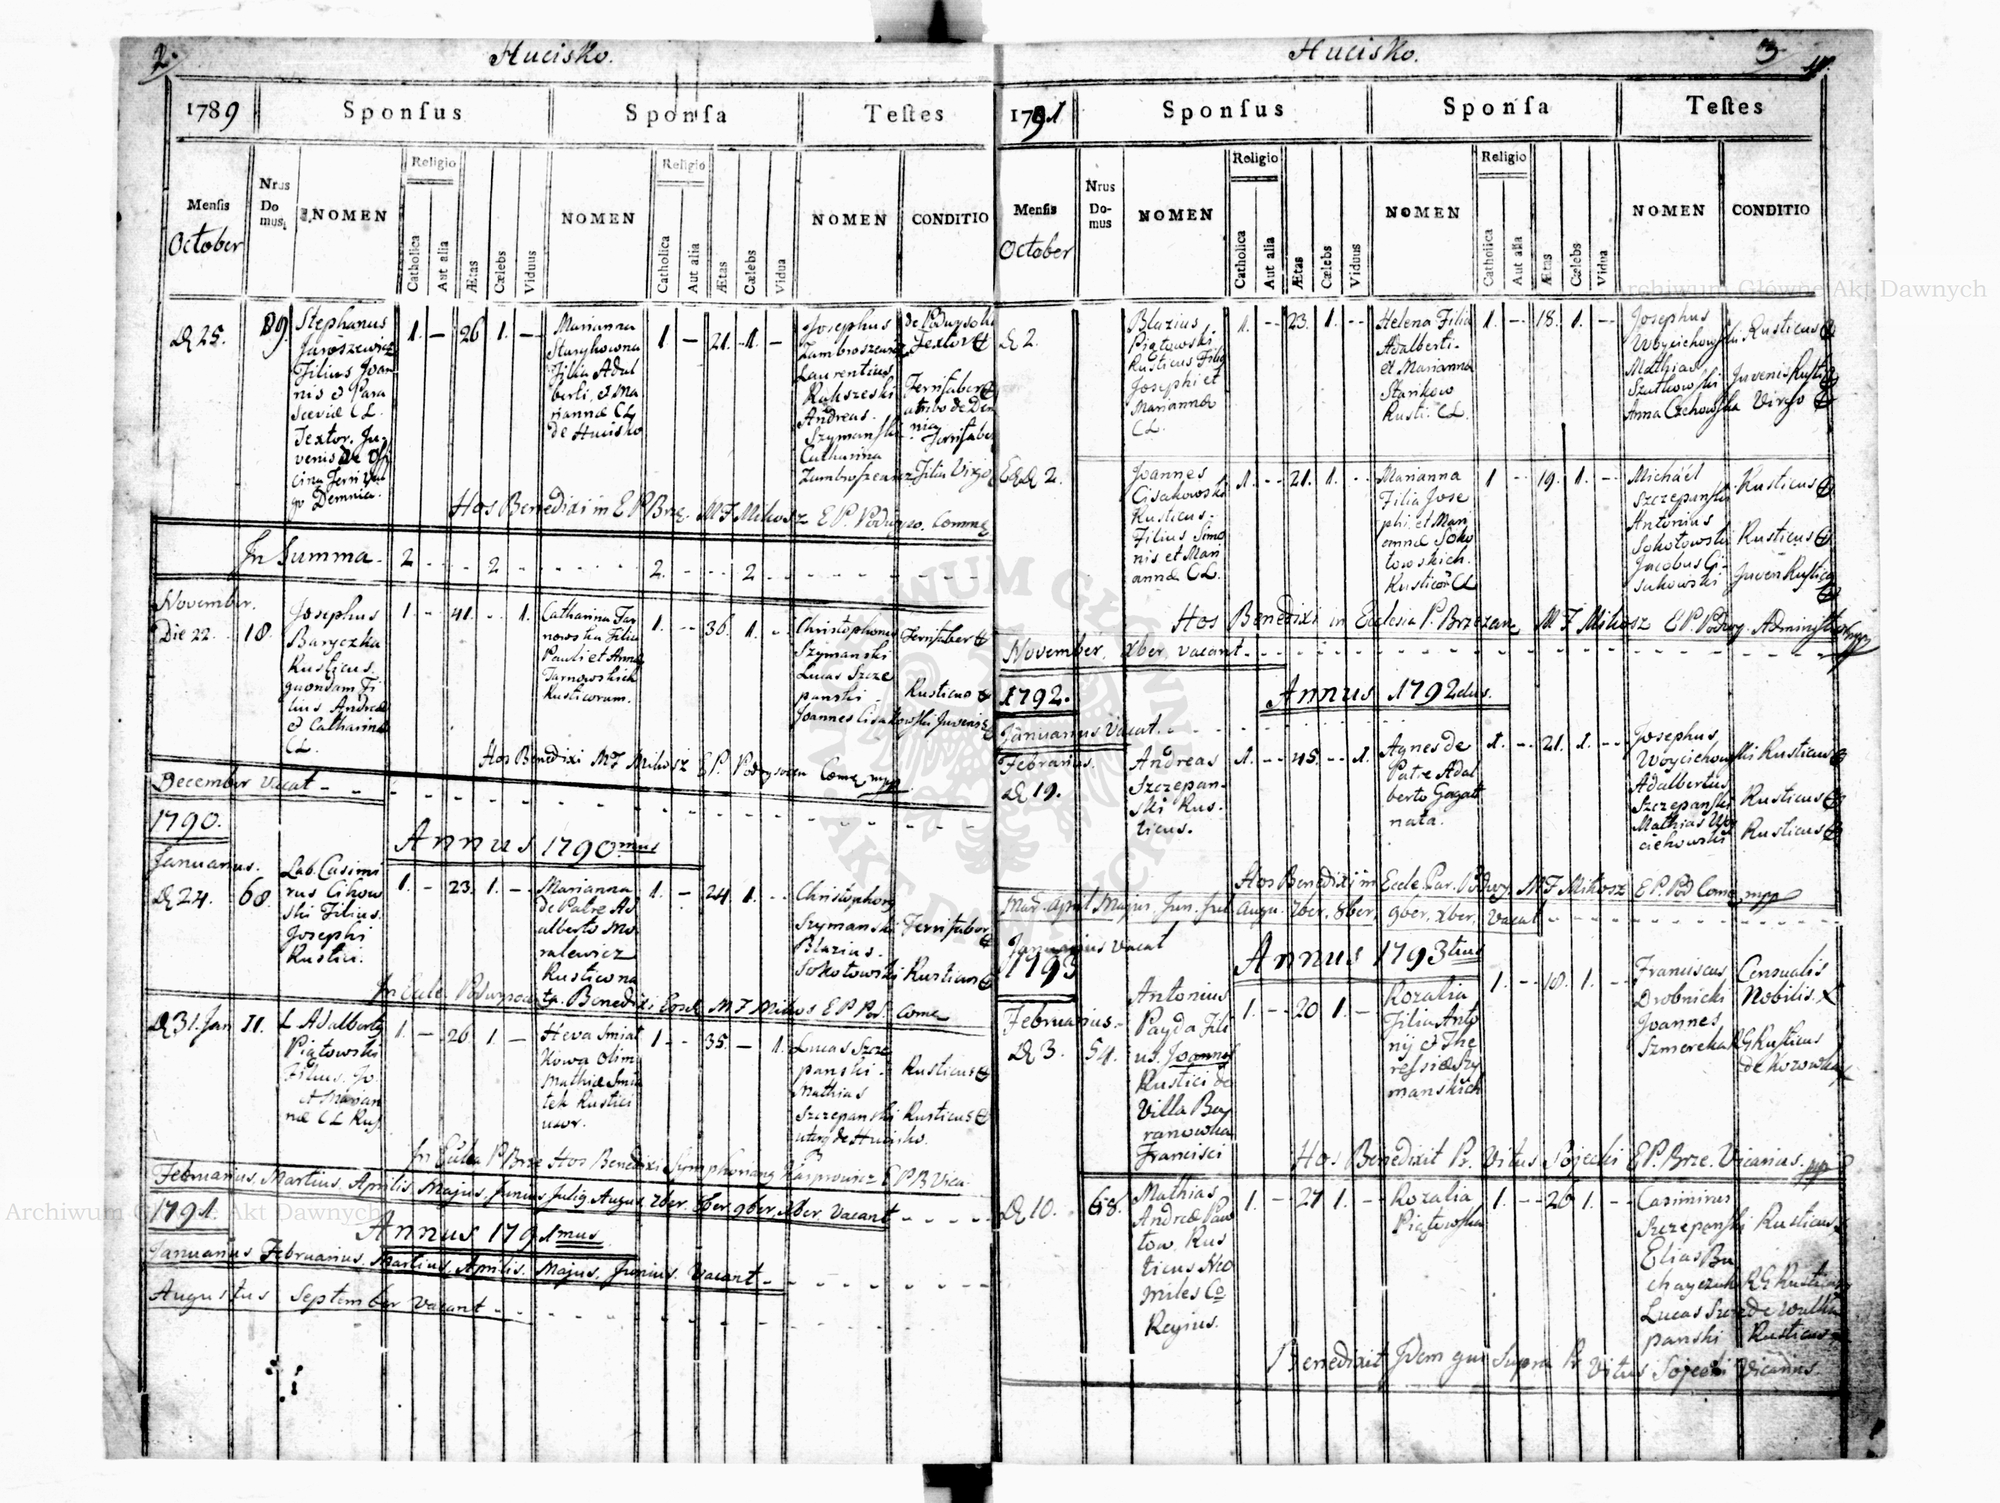 2.
Hucisko.
1789
Sponſus
Sponſa
Teſtes
Menſis
October
Nrus
Do
mus
NOMEN
Religio
Catholica
Aut alia
Ætas
Cælebs
Viduus
NOMEN
Religio
Catholica
Aut alia
Ætas
Cælebs
Vidua
NOMEN
CONDITIO
D 25.
Stephanus
Jaroszewicz
Filius Joan
nis & Para
sceviæ CL.
Textor. Ju
venis de
cina Ferri
Demnia.
1. — 26 1. —
Marianna
Filia Adal
berti, & Ma
riannæ CL
de Hucisko
1 — 21. 1. —
Josephus
Zambroszewicz
Laurentius
Andreas
Szymanski
Catharina
Textor
Ferrifaber
Ferrifaber
Filia Virgo
Hos Benedixi in E P Brze. M F Mikosz E P. Podwyso. Comme
In Summa. 2 2 2. 2
November.
Die 22. 18.
Josephus
Baryczka
Rusticus.
quondam Fi
lius Andreæ
& Catharinæ
CL.
1. - 41. - 1.
Catharina Tar
nowska Filia
Pauli et Annæ
Tarnowskich
Rusticorum.
1. - 36. 1. -
Christophorus
Szymanski
Lucas Szcze
panski
Joannes Cisakowski Juvenis
Ferrifaber
Rusticus
Hos Benedixi M F Mikosz E P. Podwysocen Come mpp
December Vacat - -
1790.
Annus 1790mus
Januarius.
D 24. 68.
Lab. Casimi
rus Cihow
ski Filius.
Josephi
Rustici.
1. - 23. 1. -
Marianna
de Patre Ad
alberto Mo
ralewicz
Rusticona
ta.
1. - 24. 1. -
Christophorus
Szymanski Ferrifaber
Blazius.
Sokołowski Rusticus
In Eccle. Podwysoce. Benedixi M F Mikos E P Pod. Come
D 31. Jan 11.
L Adalbertus
Piątowski
Filius Jo.
& Marian
næ CL Rus
1. — 26 1. —
Heva Smiat
kowa olim
Mathiæ Smia
tek Rustici
uxor.
1. - 35. — 1.
Lucas Szcze
panski - Rusticus
Mathias
Szczepanski Rusticus
uterq de Hucisko.
In Eccla P Brze Hos Benedixi Symphorianus Kasprowicz E P B Vica
Februarius, Martius, Aprilis, Majus, Junius, Julig, Augus, 7ber, 8ber, 9ber, Xber. Vacant
1791.
Annus 1791mus
Januarius Februarius, Martius, Aprilis. Majus, Junius. Vacant -
Augustus September Vacant - -
Hucisko.
3
1791
Sponſus
Sponſa
Teſtes
Menſis
October
Nrus
Do-
mus
NOMEN
Religio
Catholica
Aut alia
Ætas
Cælebs
Viduus
NOMEN
Religio
Catholica
Aut alia
Ætas
Cælebs
Vidua
NOMEN
CONDITIO
D 2.
Blazius
Piątowski
Rusticus Filig
Josephi et
Mariannæ
CL.
1. -- 23. 1. --
Helena Filia
Adalberti
et Marianna
Stankow
Rusti. CL.
1. - 18. 1. -
Josephus
Woyciechowski Rusticus
Mathias
Szutkowski Juvenis Rusti
Anna Cichowska Virgo
E D 2.
Joannes
Cisakowski
Rusticus.
Filius Simo
nis et Mari
annæ CL.
1. -- 21. 1. --
Marianna
Filia Jose
phi et Mari
annæ Soko
łowskich.
Rusticor CL
1 -- 19. 1. --
Michaël
Szczepanski Rusticus
Antonius
Sokołowski Rusticus
Jacobus Ci
sakowski Juven Rustico
Hos Benedixi in Ecclesia P. Brzezane M F Mikosz E P. Podwy. Administrator mpp
November, Xber, vacant - -
1792.
Annus 1792dus.
Januarius Vacat.
Februarius.
D 19.
Andreas
Szczepan-
ski Rus-
ticus.
1. -- 45. -- 1.
Agnes de
Patre Adal
berto Gagat
nata.
1. - 21. 1. --
Josephus
Woyciechowski Rusticus
Adalbertus
Szczepanski Rusticus
Mathias Woy
ciehowski Rusticus
Hos Benedixi in Eccle Par. Podwy M F Mikosz E P. Pod Come mpp
Mar. April Majus. Jun. Jul Augu. 7ber. 8ber, 9ber, Xber, Vacat
Januarius Vacat
1793
Annus 1793tius
Februarius.
D 3. 54.
Antonius
Payda Fili
us. Joannes
Rustici de
Villa Bay
ranowka
Francisci
1. -- 20 1. --
Rozalia
Filia Anto
nij & The
ressiæ Szy
manskich
1. -- 18. 1. -
Franciscus Censualis
Drobnicki Nobilis. X
Joannes
Szmereka RG Rusticus
de Kozowka
Hos Benedixit Pr. Vitus Sojecki E P. Brze. Vicarius. mpp
D 10. 68.
Mathias
Andreæ Paw
łow, Rus
ticus Neo
miles Co
Regius.
1. -- 27 1. --
Rozalia
Piątowska
1. -- 26 1. --
Casimirus
Szczepanski Rusticus
Elias Bu
chayczuk RG Rusticus
Lucas Szcze de Wulka
panski Rusticus
Benedixit Idem qui Supra Pr Vitus Sojecki Vicarius.
Archiwum Główne Akt Dawnych
Archiwum Główne Akt Dawnych